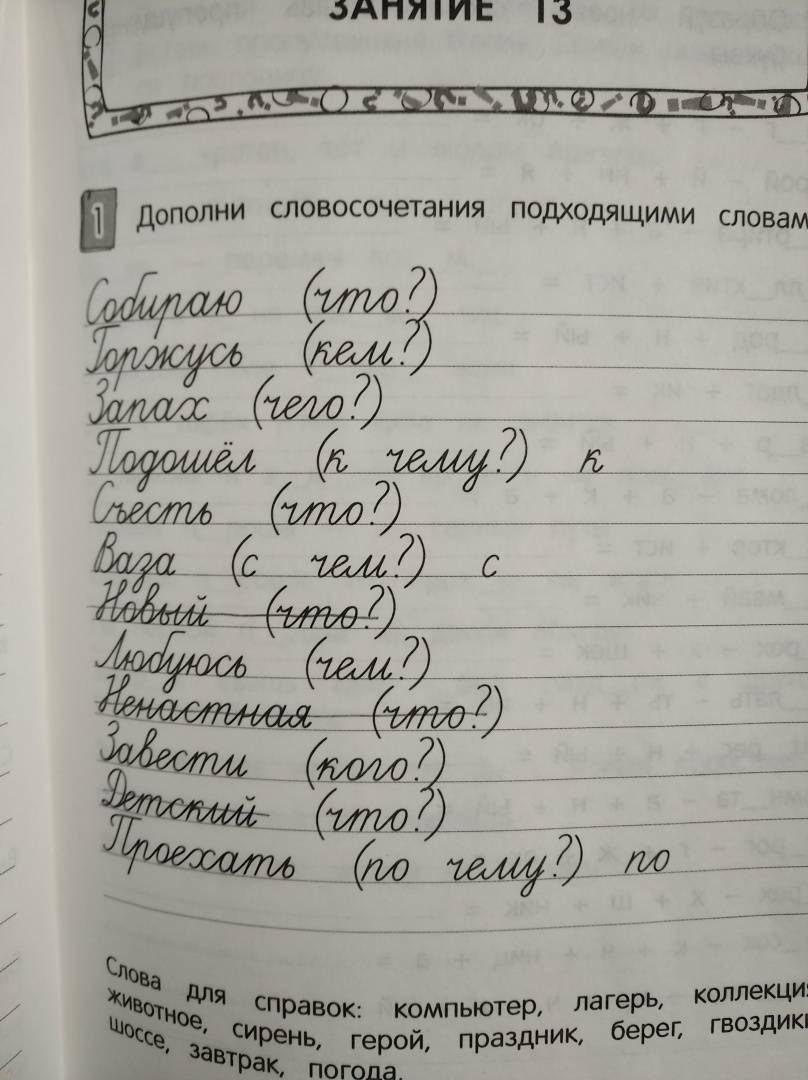 ЗАНЯТИЕ 13
1 Дополни словосочетания подходящими словам
Собираю (что?)
Горжусь (кем?)
Запах (чего?)
Подошёл (к чему?) к
Съесть (что?)
Ваза (с чем?) с
Новый (что?)
Любуюсь (чем?)
Ненастная (что?)
Завести (кого?)
Детский (что?)
Проехать (по чему?) по
Слова для справок: компьютер, лагерь, коллекция
животное, сирень, герой, праздник, берег, гвоздики
шоссе, завтрак, погода.